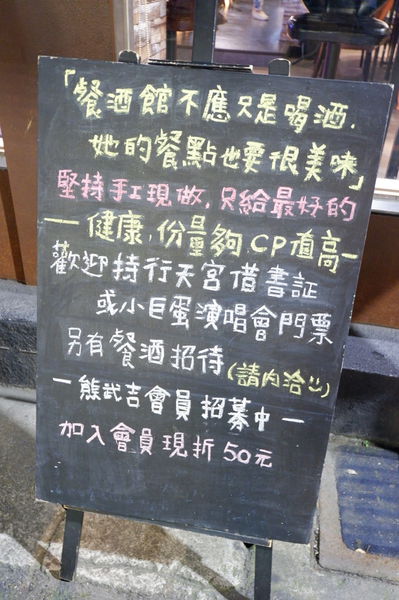 「餐酒館不應只是喝酒.
她的餐點也要很美味」
堅持手工現做,只給最好的
一健康,份量夠CP值高一
歡迎持行天宮借書証
或小巨蛋演唱會門票
另有餐酒招待(請內洽∵)
一熊武吉會員招募中一
加入會員現折50元